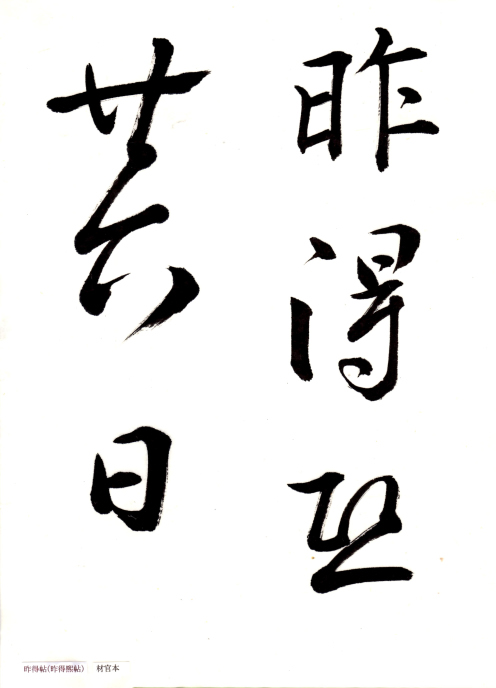 昨得熙
廿六日
昨得帖(昨得熙帖) 材官本